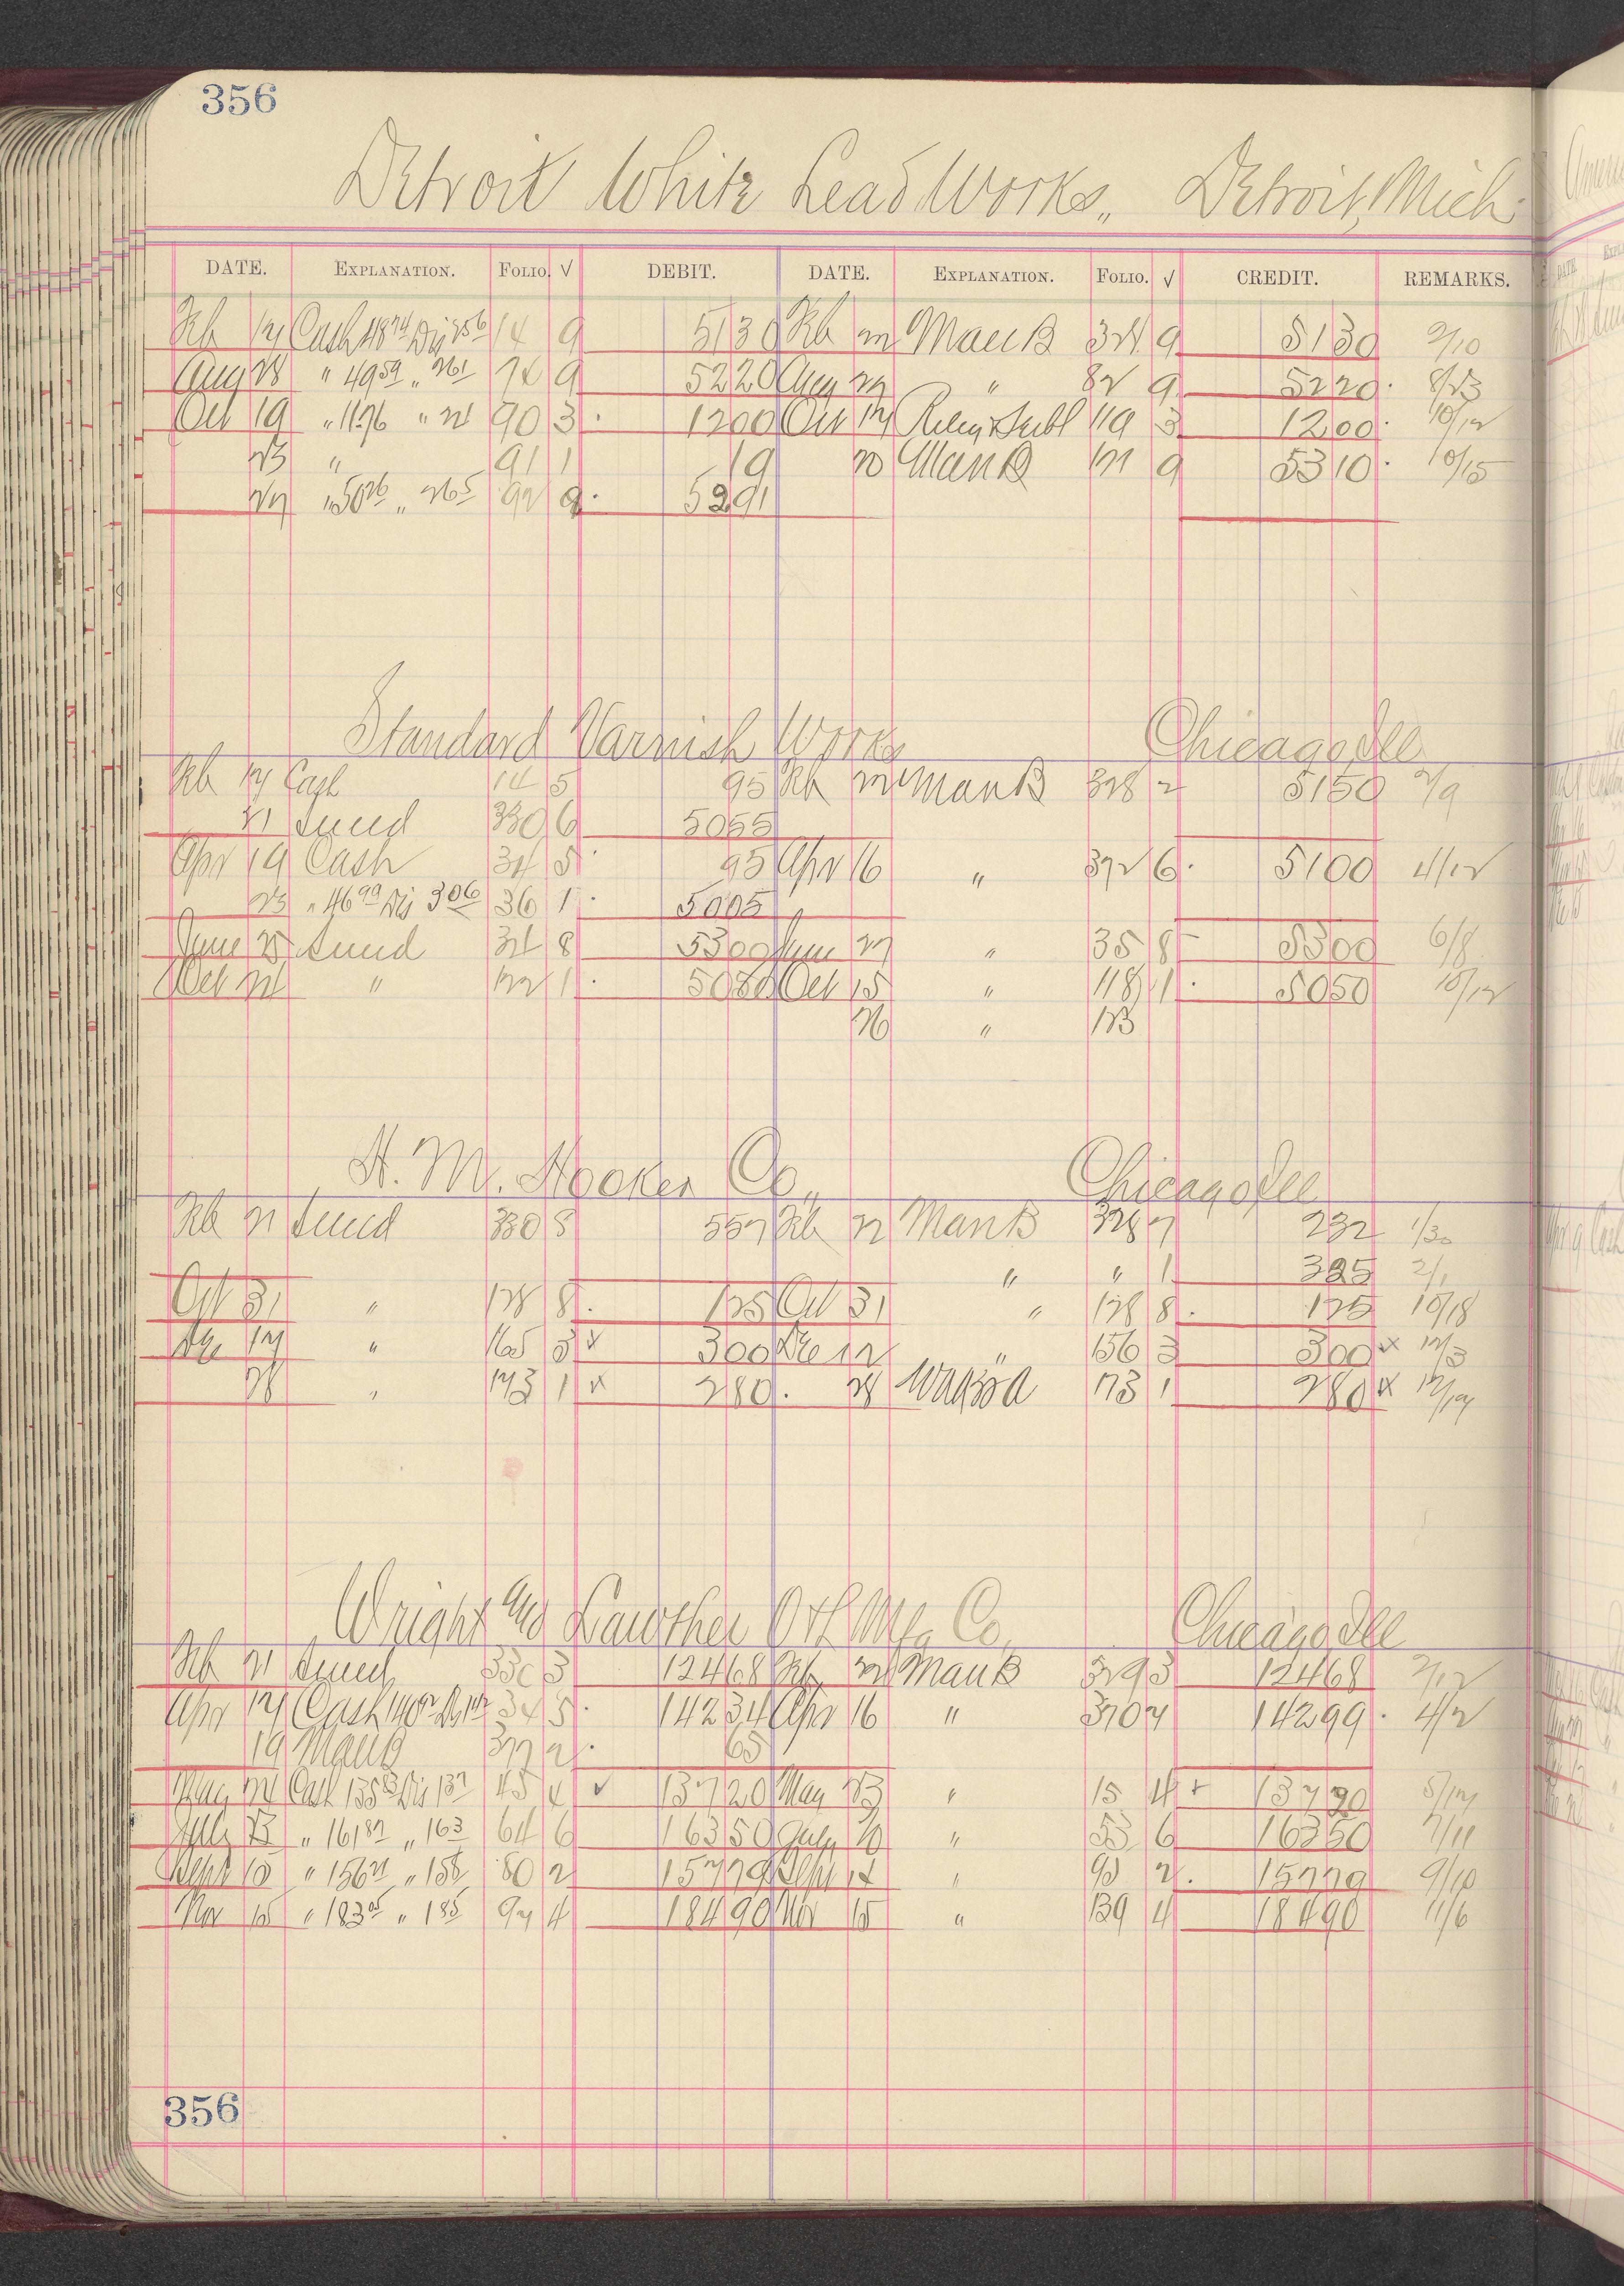 356
Detroit White Lead Works,, Detroit, Mich.
DATE. EXPLANATION. FOLIO. √ DEBIT. DATE. EXPLANATION. FOLIO. √ CREDIT. REMARKS.
Feb 17 Cash 48 74 Dis 2 56 14 9 51 30 Feb Man B 324 9 51 30 2/10
Aug 28 " 49 59 " 2 61 74 9 52 20 Aug 27 " 82 9 52 20 8/23
Oct 19 " 11 76 " 24 90 3 12 00 Oct 17 119 3 12 00 10/12
23 " 91 1 19 20 Man B 121 9 53 10 10/15
27 " 50 26 " 2 65 92 9 52 91
Standard Varnish Works Chicago, Ill
Feb 17 Cash 14 5 95 Feb Man B 328 2 51 50 2/9
21 Sund 330 6 50 55
Apr 19 Cash 34 5 95 Apr 16 " 372 6 51 00 4/12
23 " 46 99 Dis 3 06 36 1 50 05
June 25 Sund 34 8 53 00 June 27 " 35 8 53 00 6/8
Oct 24 " 122 1 50 80 Oct 15 " 118 1 50 50 10/12
26 " 123
H. M. Hooker Co,, Chicago, Ill
Feb 21 Sund 330 8 5 57 Feb 22 Man B 328 7 2 32 1/30
" " 1 3 25 2/1
Oct 31 " 128 8 1 25 Oct 31 " 128 8 1 25 10/18
Dec 17 " 165 3 3 00 Dec 12 " 156 3 3 00 x 12/3
28 " 173 1 2 80 28 173 1 2 80 x 12/19
Wright and Lawther O & L Mfg Co,, Chicago Ill
Feb 21 Sund 330 3 124 68 Feb Man B 329 3 124 68 2/12
Apr 17 Cash 140 92 Dis 1 42 34 5 142 34 Apr 16 " 370 7 142 99 4/2
19 Man B 377 2 65
May 24 Cash 135 83 Dis 1 37 45 4 √ 137 20 May 23 " 15 4 137 20 5/17
July 23 " 161 87 " 1 63 64 6 163 50 July 20 " 53 6 163 50 7/11
Sept 15 " 156 21 " 1 58 80 2 157 79 Sept 14 " 90 2 157 79 9/10
Nov 15 " 183 05 " 1 85 97 4 184 90 Nov 15 " 139 4 184 90 11/6
356